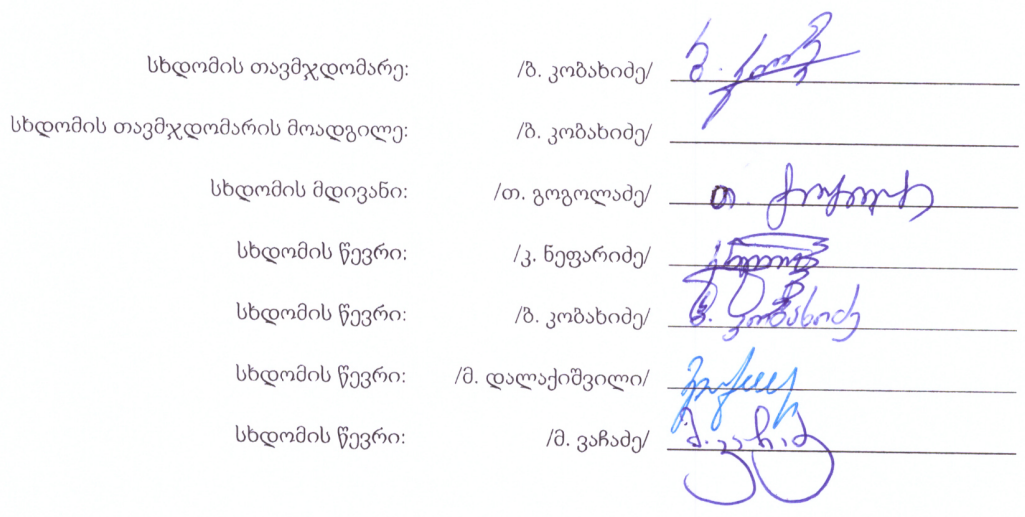 სხდომის თავმჯდომარე: /ბ. კობახიძე/
სხდომის თავმჯდომარის მოადგილე: /ბ. კობახიძე/
სხდომის მდივანი: /თ. გოგოლაძე/ თ.
სხდომის წევრი: /კ. ნეფარიძე/
სხდომის წევრი: /ბ. კობახიძე/ ბ. კობახიძე
სხდომის წევრი: /მ. დალაქიშვილი/
სხდომის წევრი: /მ. ვაჩაძე/ მ. ვაჩაძე